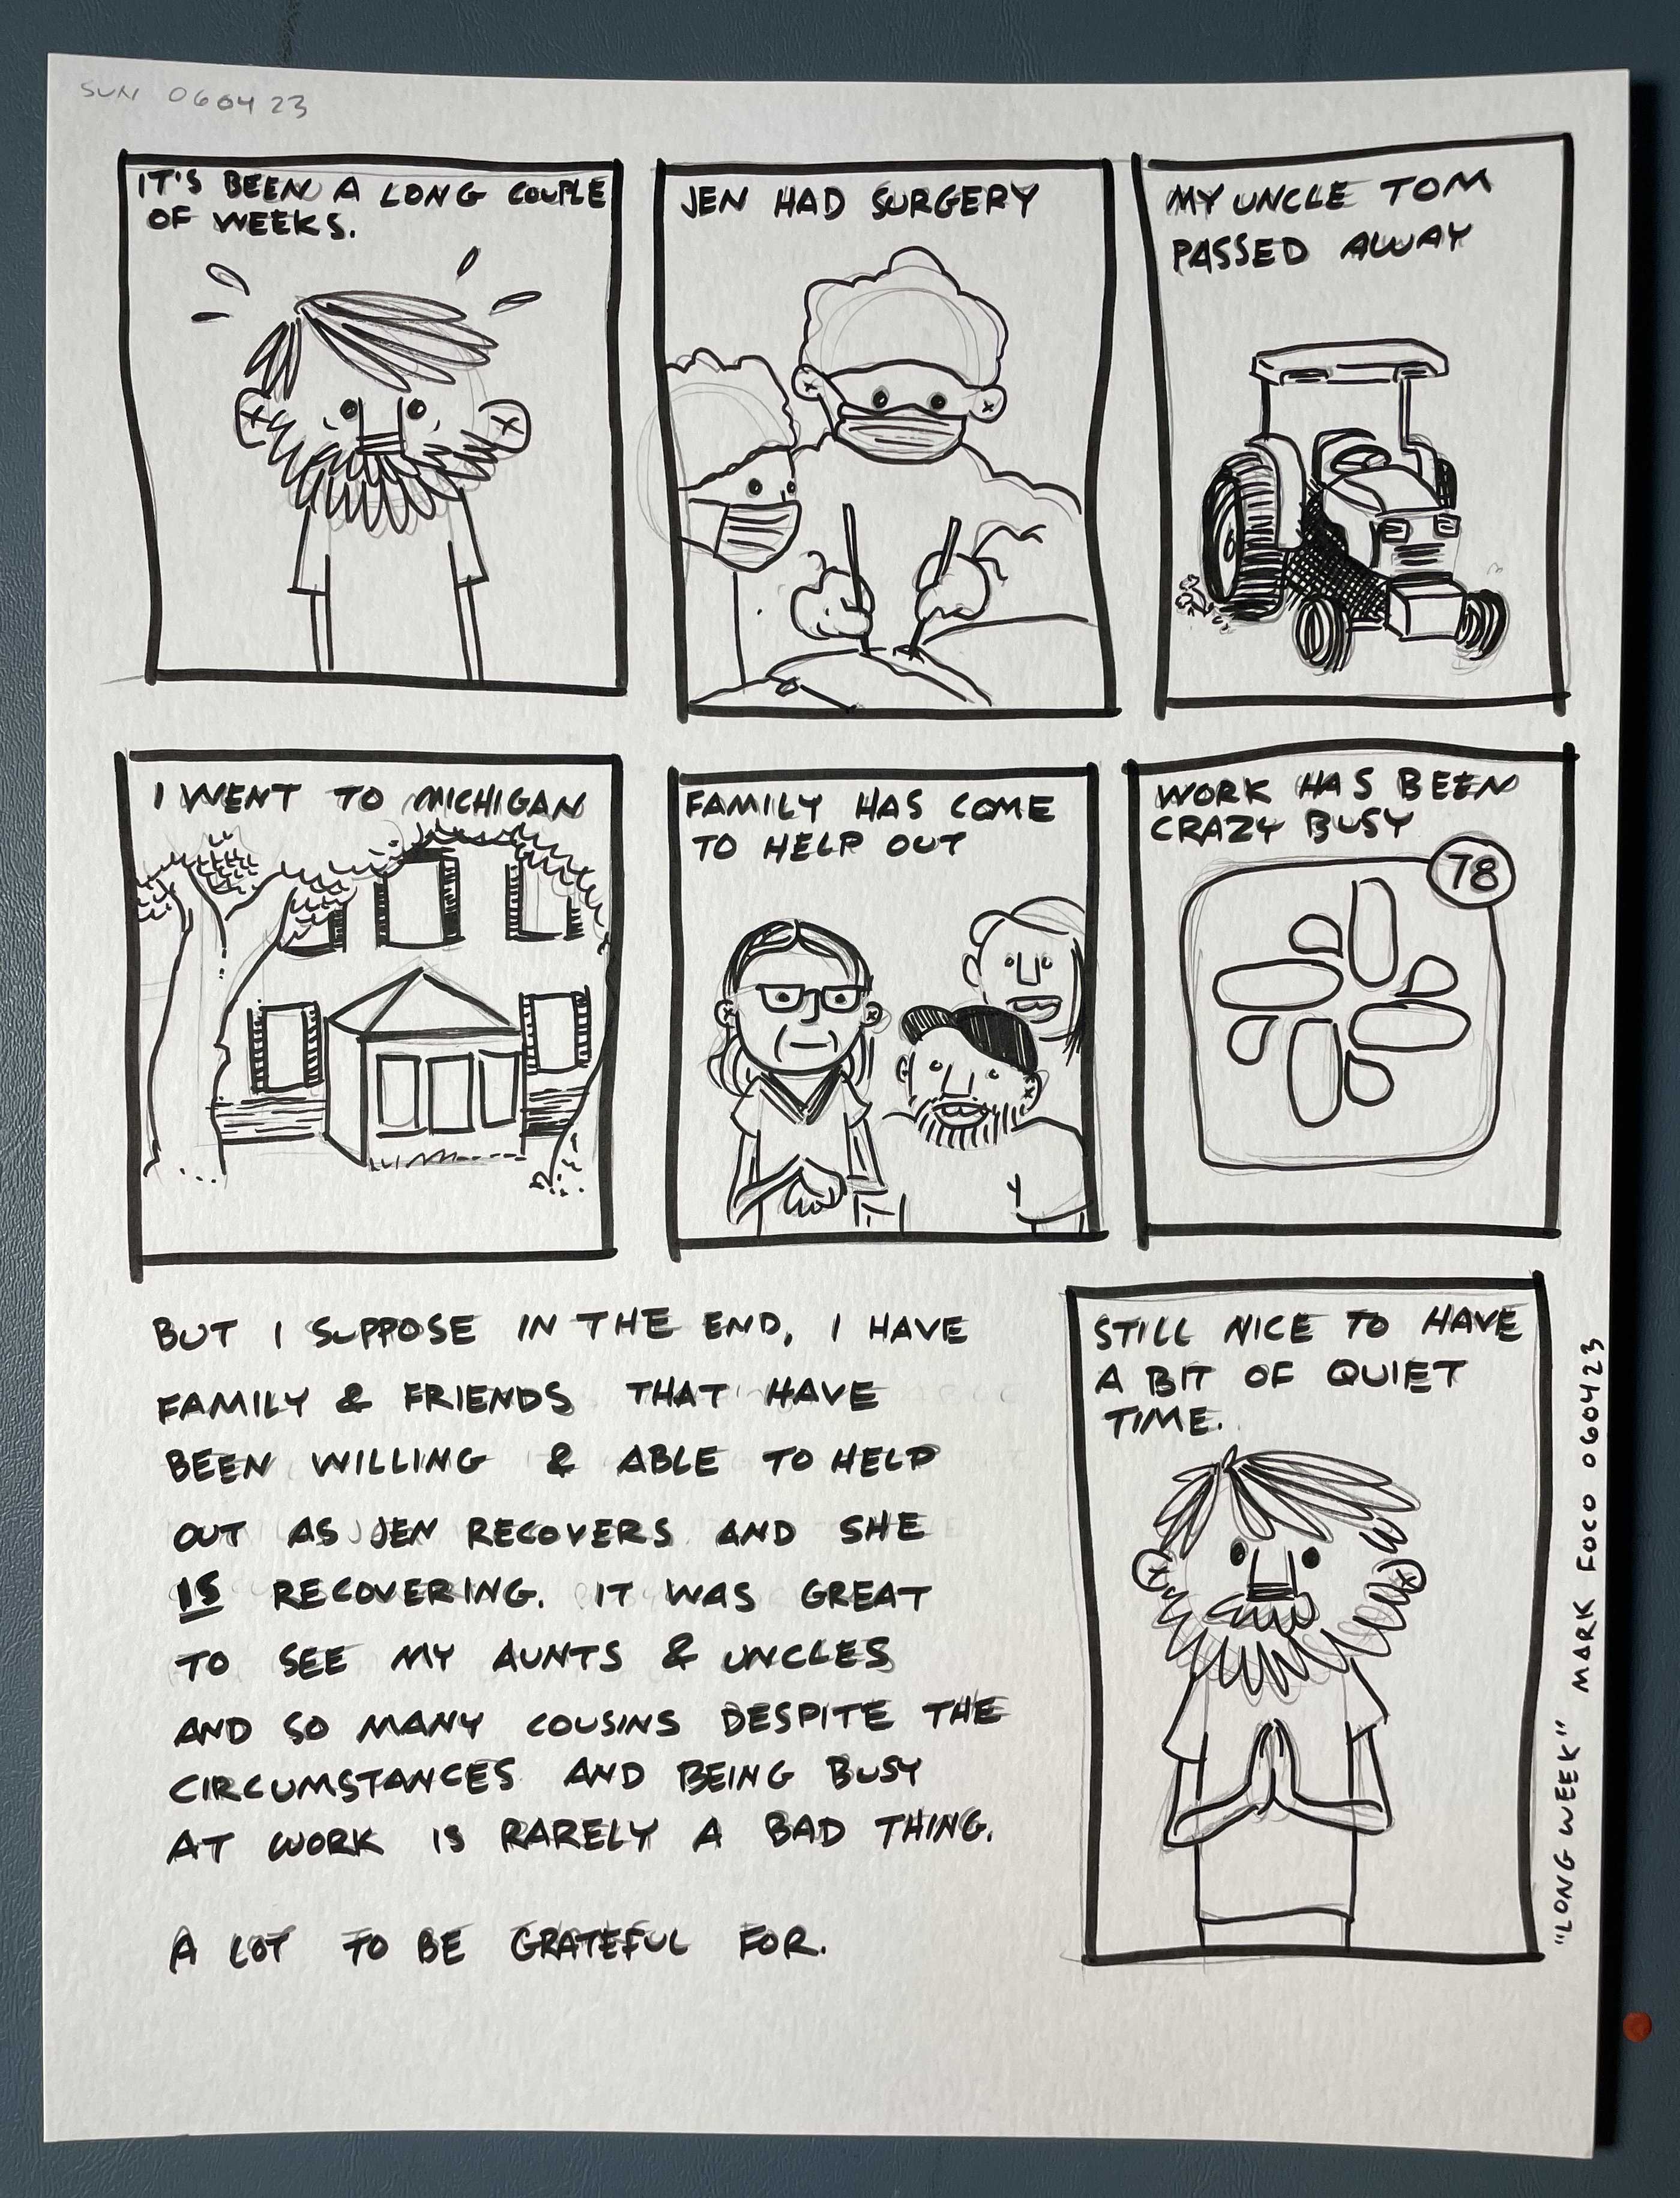 SUN 060423
IT'S BEEN A LONG COUPLE
OF WEEKS.
JEN HAD SURGERY
MY UNCLE TOM
PASSED AWAY
I WENT TO MICHIGAN
FAMILY HAS COME
TO HELP OUT
WORK HAS BEEN
CRAZY BUSY
78
BUT I SUPPOSE IN THE END, I HAVE
FAMILY & FRIENDS THAT HAVE
BEEN WILLING & ABLE TO HELP
OUT AS JEN RECOVERS AND SHE
IS RECOVERING. IT WAS GREAT
TO SEE MY AUNTS & UNCLES
AND SO MANY COUSINS DESPITE THE
CIRCUMSTANCES AND BEING BUSY
AT WORK IS RARELY A BAD THING.
A LOT TO BE GRATEFUL FOR.
STILL NICE TO HAVE
A BIT OF QUIET
TIME.
"LONG WEEK" MARK FOCO 060423